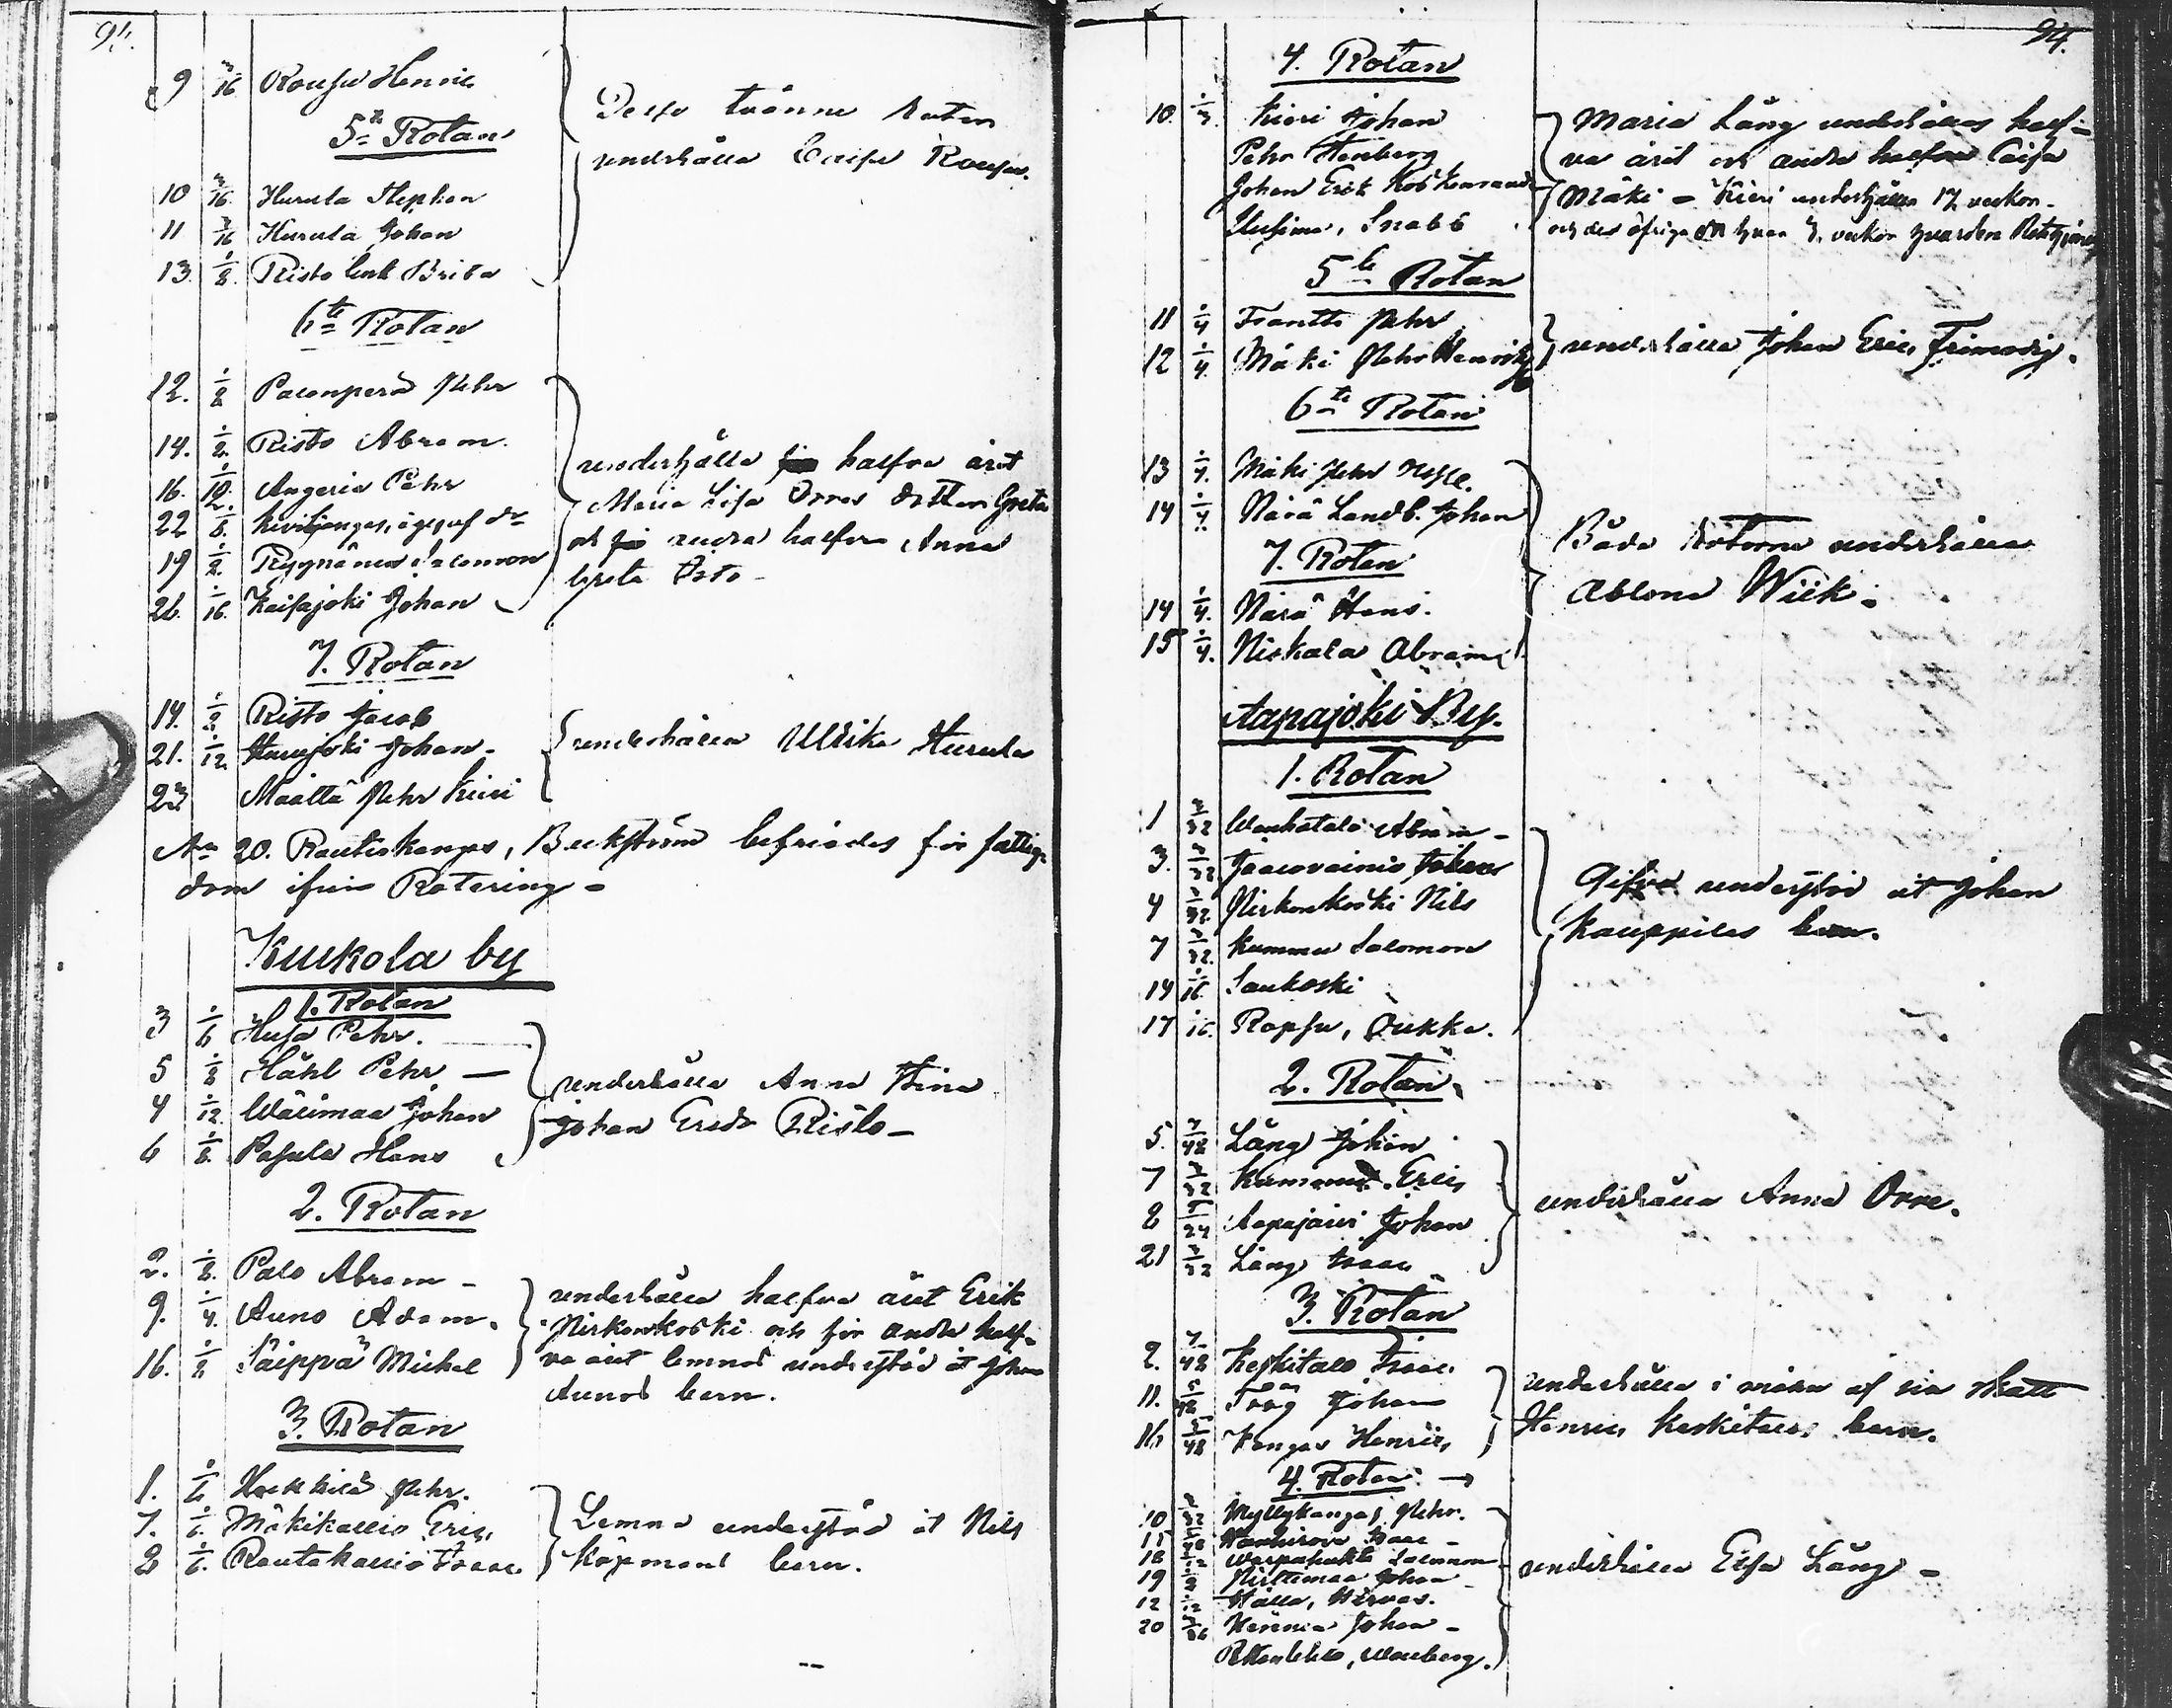 9 3/16 Rousu Henric
5te Rotan
10 3/16 Hurula Stephan
11 3/16 Hurula Johan
13. 1/8. Risto Enk. Brita
Desse tvänne Rotar
underhålla Caisa Rousu.
6te Rotan
12. 1/8 Palonperä Pehr
14. 1/8. Risto Abram.
16. Angeria Pehr
22 1/8. Kivikangas,
19 1/8. Ryynänen Salomon
26. 1/16. Kaisajoki Johan
underhålla halfva året
Maria Lisa Orres dotter Greta
och andra halfva Anna
Greta Risto
7. Rotan
14. 1/8 Risto Jacob
21. 1/12 Johan
23 Määttä Pehr Kieri
underhålla Ullrika Hurula
No 20. Rautiokangas, Beckström befriades för fattig-
dom ifrån Rotering
Kukola by
1. Rotan
3 1/6 Husa Pehr.
5 1/8 Håhl Pehr
4 1/12. Wälimaa Johan
6 1/8. Pasula Hans
underhålla Anna Stina
Johan Ersdr Risto
2. Rotan
2. 1/8. Palo Abram
9. 1/4. Auno Adam.
16. 1/8 Säippä Michel
underhålla halfva året Erik
Niskankoski och för andra half-
va året lemna understöd åt Johan
Aunos barn.
3. Rotan
1. 1/6 Heikkilä Pehr.
7. 1/6. Mäkikallio Eric,
8 1/6. Rautakallio Isaac
Lemna understöd åt Nils
Köpmans barn.
94.
4. Rotan
10. 1/4. Kieri Johan
Pehr Stenberg
Johan Erik Koskenranda
Uusimaa, Snabb
Maria Lång underhålles half-
va året och andra halfva Caisa
Mäki – Kieri underhålla 17 veckor
och de öfriga
5te Rotan
11 1/4 Frantti Pehr
12 1/4. Mäki Pehr Henrik
underhålla Johan Eric Frimodig.
6te Rotan
13 1/4. Mäki Pehr
14 1/4. Närä Landb. Johan
7. Rotan
14 1/4. Närä Hans.
15 1/4. Niskala Abram
Båda Rotorne underhålla
Ablona Wiik.
Aapajoki By.
1. Rotan
1 3/32 Wanhatalo Abram
3. 3/32 Jaacovainio Johan
4 3/32. Niskankoski Nils
7 3/32. Kummu Salomon
14 1/16. Saukoski
17 1/16. Rapsu, Oukka.
Gifva understöd åt Johan
Kauppilas barn.
2. Rotan.
5. 7/48 Lång Johan
7 3/32 Kummu Eric,
8 5/24 Aapajärvi Johan
21 3/32 Lång Isaac
underhålla Anna Orre.
3. Rotan
2. 7/48 Keskitalo Isaac
11. 5/48 Frög Johan
16 5/48 Kangas Henric,
underhålla i mån af sin skatt
Henric Keskitalos barn.
4. Rotan
10 3/32 Myllykangas Pehr.
15 Isaac
18 Salomon
19 Johan
12 1/12
20 Johan
underhålla Elsa Lång